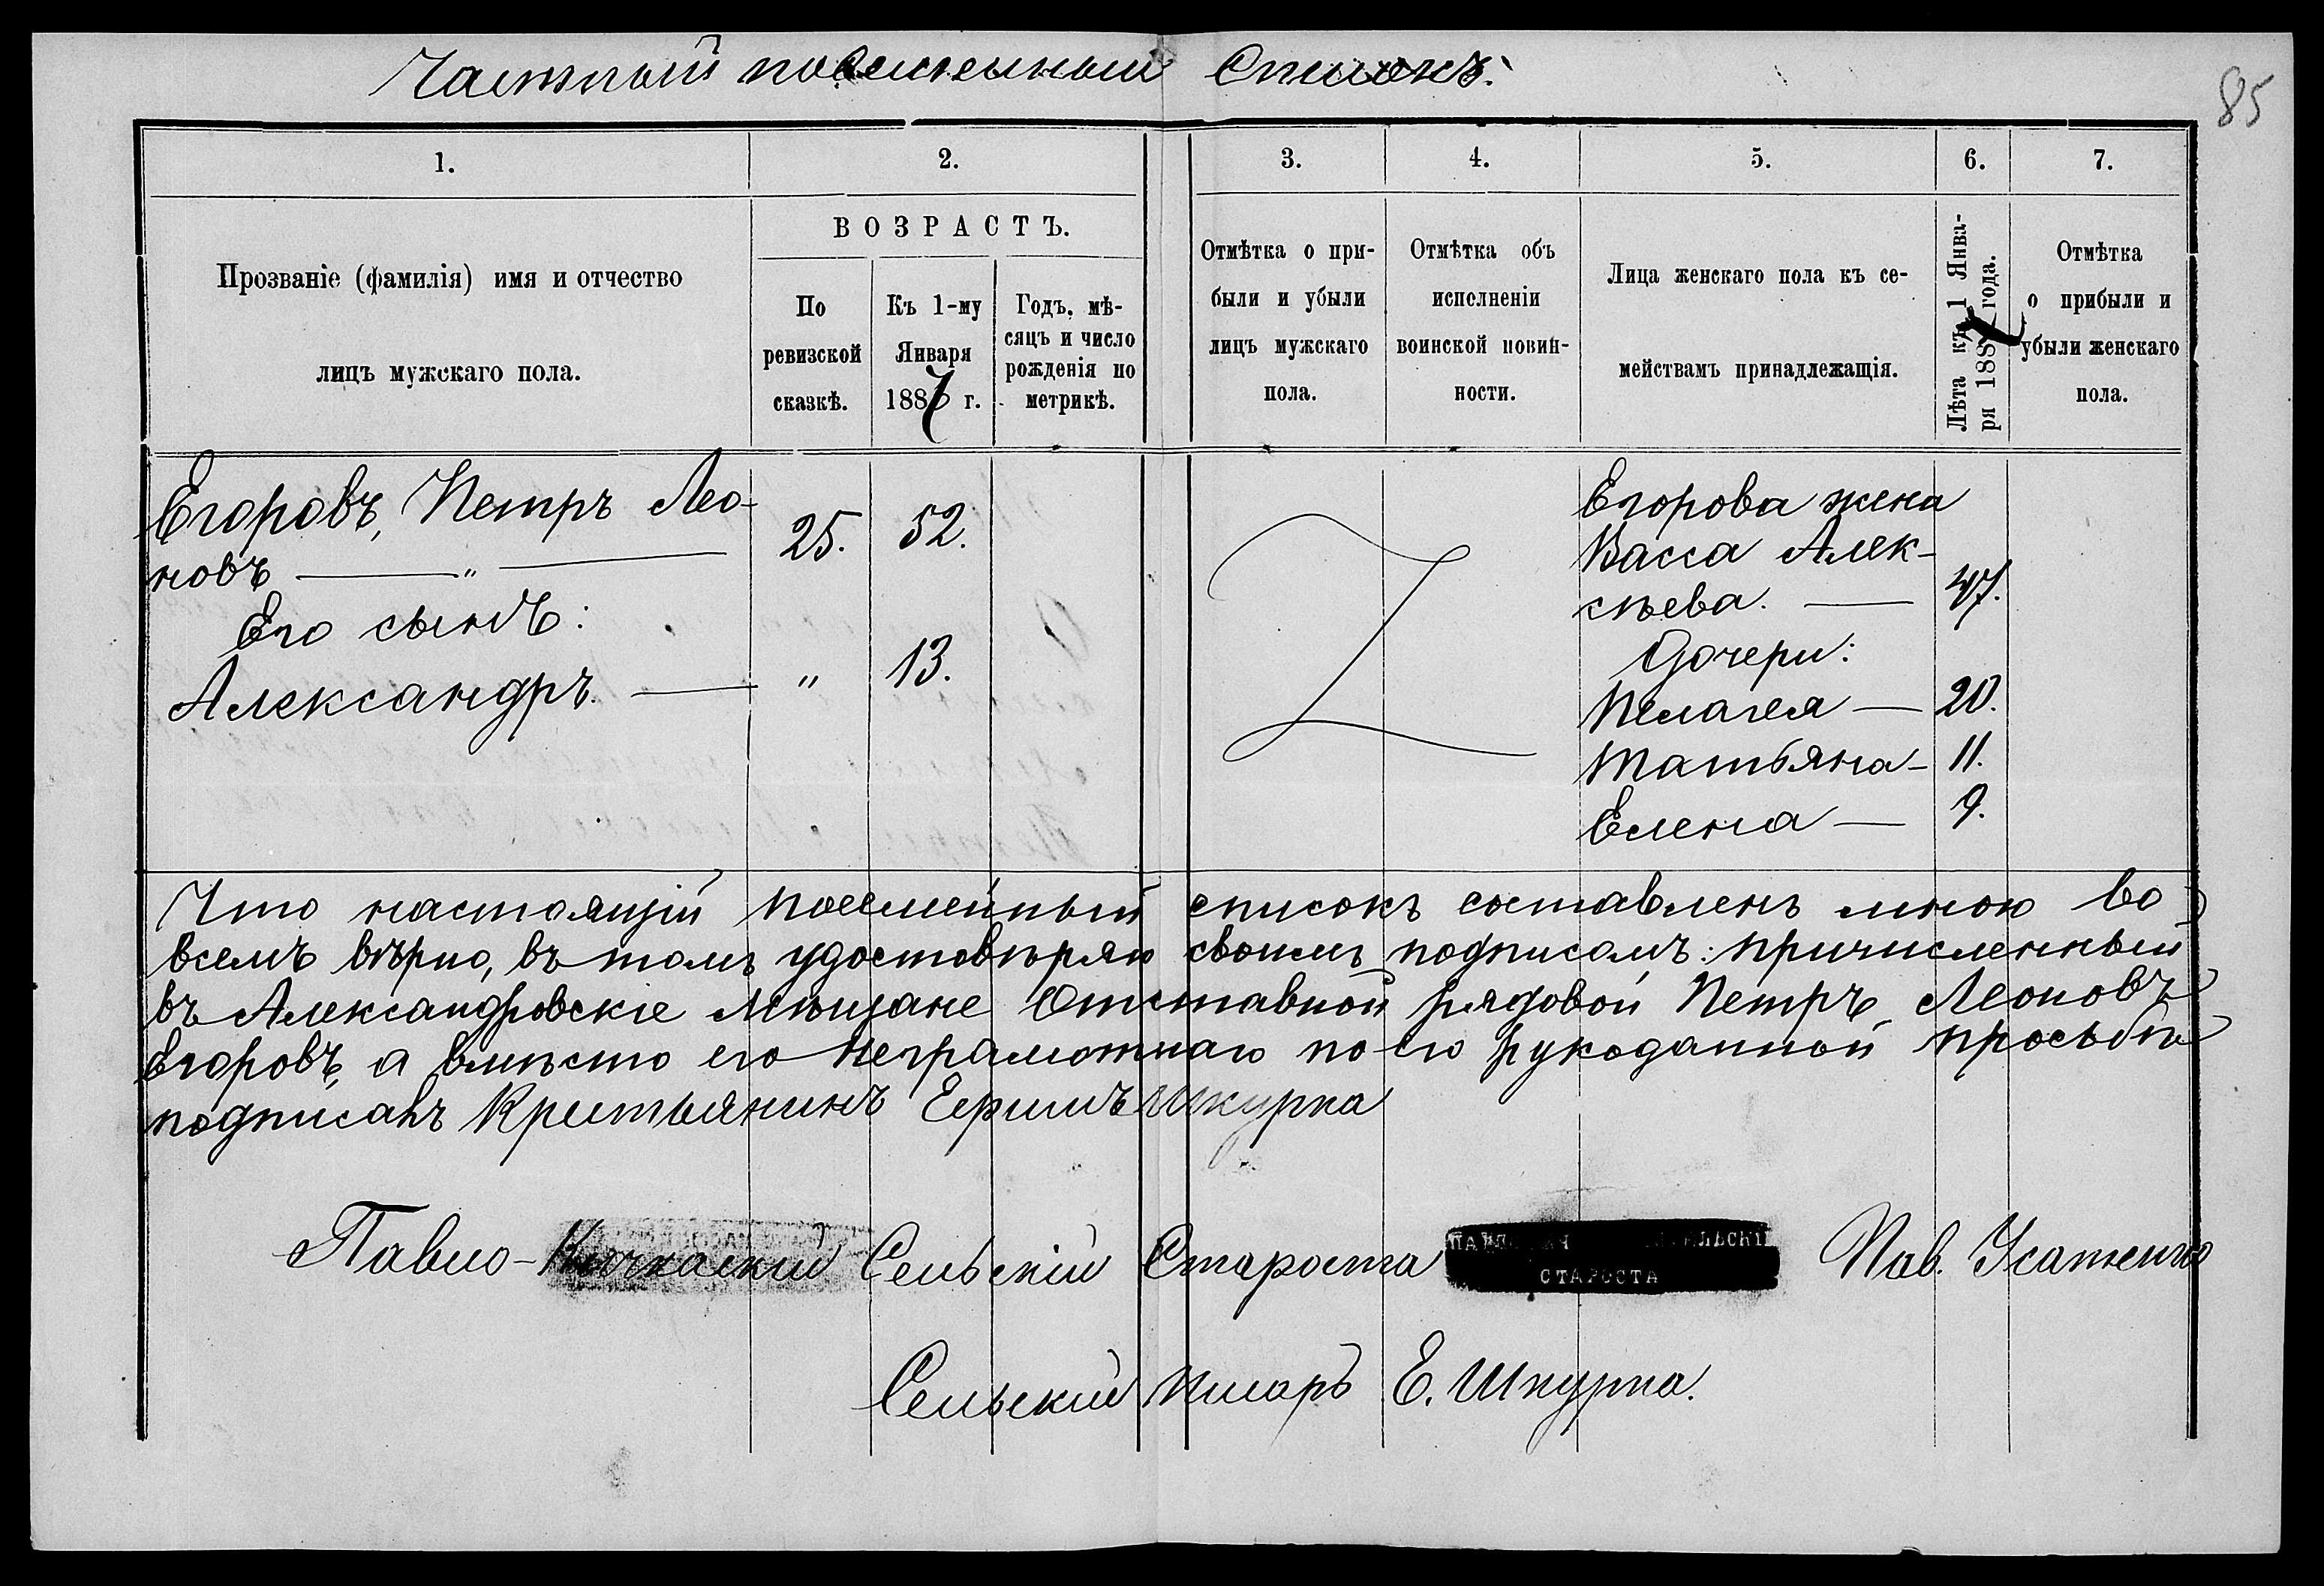 Частный посемейный Списокъ.
85
1.
2.
3.
4.
5.
6.
7.
Прозваніе (фамилія) имя и отчество
лицъ мужскаго пола.
ВОЗРАСТЪ.
По
ревизской
сказкѣ.
Къ 1-му
Января
1887 г.
Годъ, мѣ-
сяцъ и число
рожденія по
метрикѣ.
Отмѣтка о при-
были и убыли
лицъ мужскаго
пола.
Отмѣтка объ
исполненіи
воинской повин-
ности.
Лица женскаго пола къ се-
мействамъ принадлежащія.
Лѣта къ 1 Янва-
ря 1887 года.
Отмѣтка
о прибыли и
убыли женскаго
пола.
Егоровъ, Петръ Лео-
новъ — „ — 25. 52.
Его сынъ:
Александръ. — „ 13.
Егорова жена
Васса Алек-
сѣева. — 47.
Дочери:
Пелагея — 20.
Татьяна — 11.
Елена — 9.
Что настоящій посемейный списокъ составленъ мною во
всемъ вѣрно, въ томъ удостовѣряю своимъ подписомъ: причисленный
въ Александровскіе Мѣщане Отставной рядовой Петръ Леоновъ
Егоровъ, а вмѣсто его неграмотнаго по его рукоданной просьбѣ
подписалъ Крестьянинъ Ефимъ Шкурка
Павло-Кичкаскій Сельскій Староста Пав. Усатенко
СТАРОСТА
Сельскій писарь Е. Шкурка.